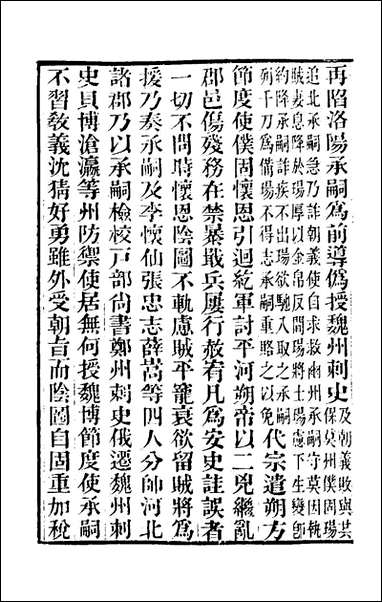 再陷洛陽承嗣爲前導僞授魏州刺史
及朝義敗與共
保莫州僕固瑒
追北承嗣急乃詐朝義使自求救幽州承嗣守莫因執
賊妻息降於瑒厚以金帛反間瑒將士瑒慮下生變卽
約降承嗣詐疾不出瑒欲馳入取之承嗣
列千刀爲備瑒不得志承嗣重賂之以免
代宗遣朔方
節度使僕固懷恩引迴紇軍討平河朔帝以二兇繼亂
郡邑傷殘務在禁暴戢兵屢行赦宥凡爲安史詿誤者
一切不問時懷恩陰圖不軌慮賊平寵衰欲留賊將爲
援乃奏承嗣及李懷仙張忠志薛嵩等四人分帥河北
諸郡乃以承嗣檢校戸部尚書鄭州刺史俄遷魏州刺
史貝博滄瀛等州防禦使居無何授魏博節度使承嗣
不習教義沈猜好勇雖外受朝旨而陰圖自固重加稅